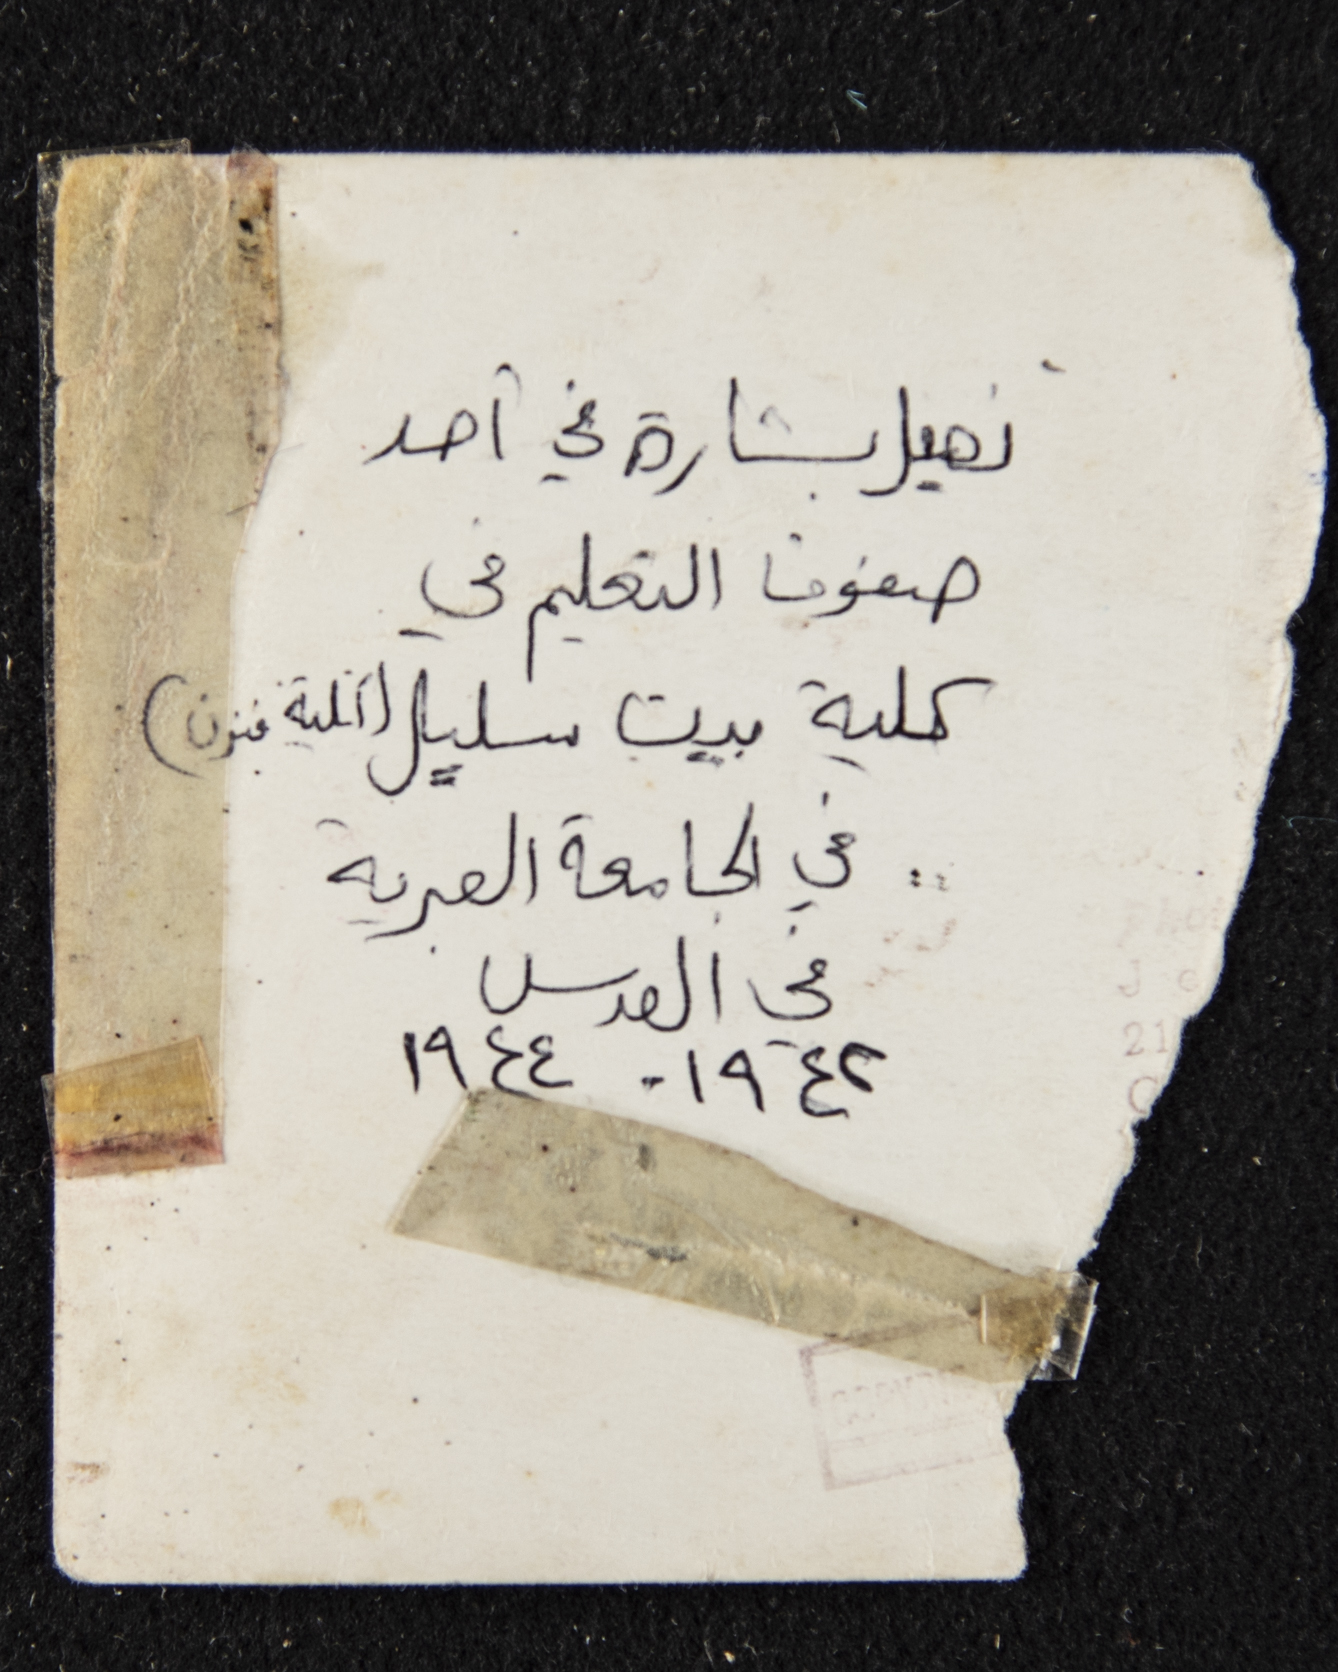 نصيل بشارة في أحد
صفوف التعليم في
كلية بيت سليل (كلية فنون)
في الجامعة العبرية
في القدس
١٩٤٢ - ١٩٤٤
J
21
C